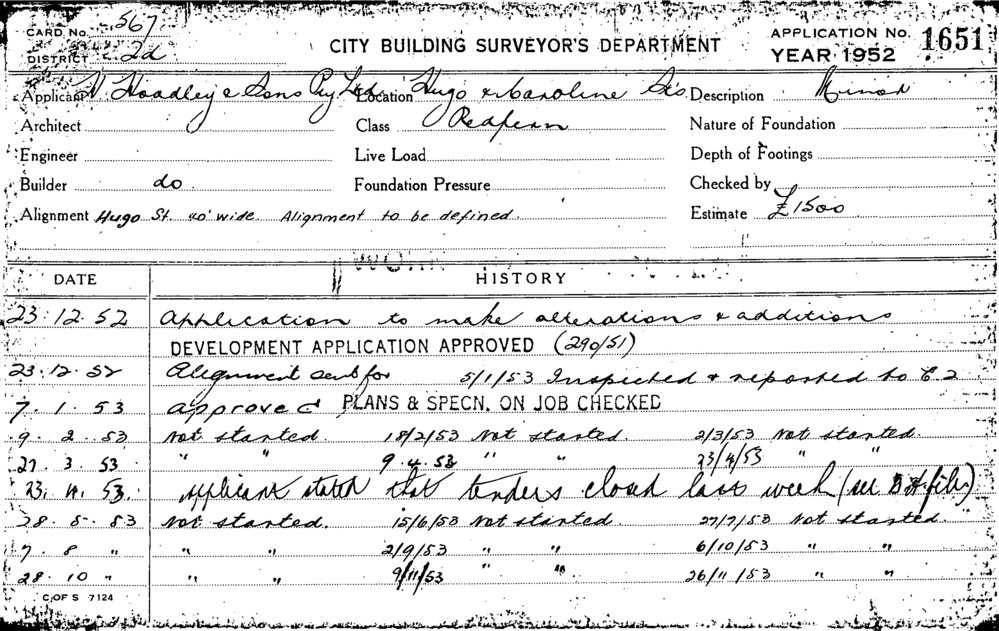 CARD No. 567
DISTRICT 2d
CITY BUILDING SURVEYOR'S DEPARTMENT
APPLICATION No. 1651
YEAR 1952
Applicant Hoadley & Sons Pty Ltd. Location Hugo & Caroline Sts. Description Minor
Architect Class Redfern Nature of Foundation
Engineer Live Load Depth of Footings
Builder do Foundation Pressure Checked by
Alignment Hugo St. 40' wide. Alignment to be defined. Estimate £1500
DATE HISTORY
23.12.52 Application to make alterations & additions
DEVELOPMENT APPLICATION APPROVED (290/51)
23.12.52 Alignment sent for 5/1/53 Inspected & reported to C.2
7.1.53 Approved PLANS & SPECN. ON JOB CHECKED
9.2.53 Not started. 18/2/53 Not started. 2/3/53 Not started.
27.3.53 " " 9.4.53 " " 23/4/53 " "
23.4.53. Applicant stated that tenders closed last week (see file)
28.5.53 Not started. 15/6/53 Not started. 27/7/53 Not started.
7.8 " " " 2/9/53 " " 6/10/53 " "
28.10 " " " 9/11/53 " " 26/11/53 " "
C. OF S 7124